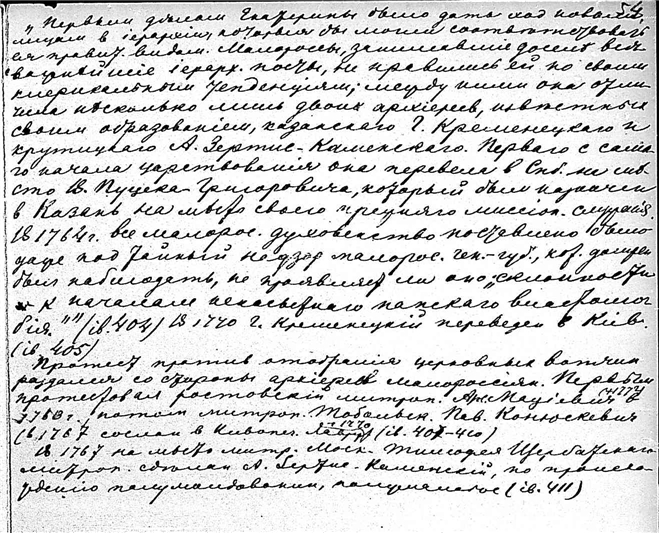 54
„Первым деломъ Екатерины было дать ход новымъ
лицам в iерархiи, которыя бы могли соответствовать
ея правит. видам. Малороссы, занимавшiе доселѣ всѣ
важнейшiе iерарх. посты, не нравились ей по своим
клерикальным тенденцiям; между ними она отли-
чила несколько лишь двоих архiереев, известных
своим образованiем, казанскаго Г. Кременецкаго и
крутицкаго А. Зертис-Каменскаго. Перваго с само-
го начала царствованiя она перевела в Спб. на мѣ-
сто В. Пуцека-Григоровича, который был назначен
в Казань на мѣсто своего прежняго миссiон. служенiя.
В 1764 г. все малорос. духовенство поставлено было
даже под тайный надзор малорос. ген.-губ., кот. должен
был наблюдать, не проявляет ли оно „склонности
к началам ненасытнаго папскаго властолю-
бiя.“" (ib. 404) В 1770 г. Кременецкiй переведен в Кiев.
(ib. 405)
Протест против отобранiя церковных вотчин
раздался со стороны архiереев малороссiян. Первым
протестовал ростовскiй митроп. Арс. Мацiевич
1763 г., потом митроп. Тобольск. Пав. Конюскевич
(в 1767 сослан в Кiевопеч. Лавру) (ib. 407-410)
В 1767 на место митр. Моск. Тимофея Щербатскаго
митроп. сделан А. Зертис-Каменскiй, по происхо-
жденiю полумолдованин, полумалоросс (ib. 411)